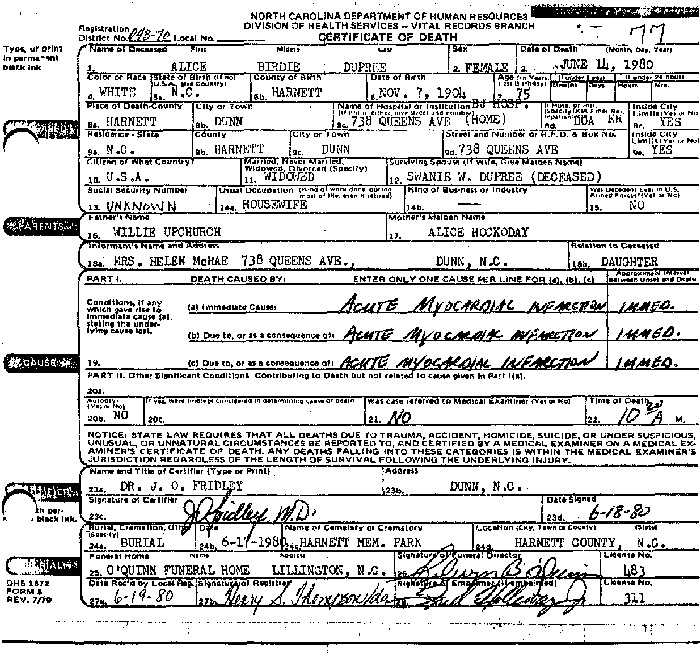 NORTH CAROLINA DEPARTMENT OF HUMAN RESOURCES
DIVISION OF HEALTH SERVICES - VITAL RECORDS BRANCH
CERTIFICATE OF DEATH
77
Registration
District No. Local No.
Type, or print
in permanent
black ink
Name of Deceased First Middle Last Sex Date of Death (Month, Day, Year)
1. ALICE BIRDIE DUPREE 2. FEMALE 3. JUNE 14, 1980
Color or Race State of Birth (If not U.S.A., name Country) County of Birth Date of Birth Age (in Years)
4. WHITE 5a. N.C. 5b. HARNETT 6. NOV. 7, 1904 7. 75
Place of Death-County City or Town Name of Hospital or Institution Inside City Limits? (Yes or No)
8a. HARNETT 8b. DUNN 8c. 738 QUEENS AVE (HOME) DOA ER 8e. YES
Residence - State County City or Town Street and Number or R.F.D. & Box No. Inside City Limits? (Yes or No)
9a. N.C. 9b. HARNETT 9c. DUNN 9d. 738 QUEENS AVE 9e. YES
Citizen of What Country? Married, Never Married, Widowed, Divorced (Specify) Surviving Spouse (If Wife, Give Maiden Name)
10. U.S.A. 11. WIDOWED 12. SWANIE W. DUPREE (DECEASED)
Social Security Number Usual Occupation Kind of Business or Industry
13. UNKNOWN 14a. HOUSEWIFE 14b. — 15. NO
PARENTS
Father's Name Mother's Maiden Name
16. WILLIE UPCHURCH 17. ALICE HOCKODAY
Informant's Name and Address Relation to Deceased
18a. MRS. HELEN McRAE 738 QUEENS AVE., DUNN, N.C. 18b. DAUGHTER
PART I. DEATH CAUSED BY: ENTER ONLY ONE CAUSE PER LINE FOR (a), (b), (c) Approximate Interval Between Onset and Death
Conditions, if any
which gave rise to
immediate cause (a),
stating the under-
lying cause last.
(a) Immediate Cause: ACUTE MYOCARDIAL INFARCTION IMMED.
(b) Due to, or as a consequence of: ACUTE MYOCARDIAL INFARCTION IMMED.
CAUSE
19. (c) Due to, or as a consequence of: ACUTE MYOCARDIAL INFARCTION IMMED.
PART II. Other Significant Conditions. Contributing to Death but not related to cause given in Part I(a).
20a.
Autopsy? (Yes or No) If yes, were findings considered in determining cause of death Was case referred to Medical Examiner (Yes or No) Time of Death
20b. NO 20c. 21. NO 22. 10 20 A M.
NOTICE: STATE LAW REQUIRES THAT ALL DEATHS DUE TO TRAUMA, ACCIDENT, HOMICIDE, SUICIDE, OR UNDER SUSPICIOUS,
UNUSUAL, OR UNNATURAL CIRCUMSTANCES BE REPORTED TO, AND CERTIFIED BY A MEDICAL EXAMINER ON A MEDICAL EX-
AMINER'S CERTIFICATE OF DEATH. ANY DEATHS FALLING INTO THESE CATEGORIES IS WITHIN THE MEDICAL EXAMINER'S
JURISDICTION REGARDLESS OF THE LENGTH OF SURVIVAL FOLLOWING THE UNDERLYING INJURY.
Name and Title of Certifier (Type or Print) Address
23a. DR. J. O. FRIDLEY 23b. DUNN, N.C.
Signature of Certifier Date Signed
23c. J. Fridley M.D. 23d. 6-18-80
black ink.
Burial, Cremation, Other (Specify) Date Name of Cemetery or Crematory Location (City, Town or County) State
24a. BURIAL 24b. 6-17-1980 24c. HARNETT MEM. PARK 24d. HARNETT COUNTY, N.C.
Funeral Home Name Address Signature of Funeral Director License No.
25. O'QUINN FUNERAL HOME LILLINGTON, N.C. 26. 483
DHS 1872
FORM 8
REV. 7/79
Date Rec'd by Local Reg. Signature of Registrar Signature of Embalmer (If embalmed) License No.
27a. 6-19-80 27b. 28. 311